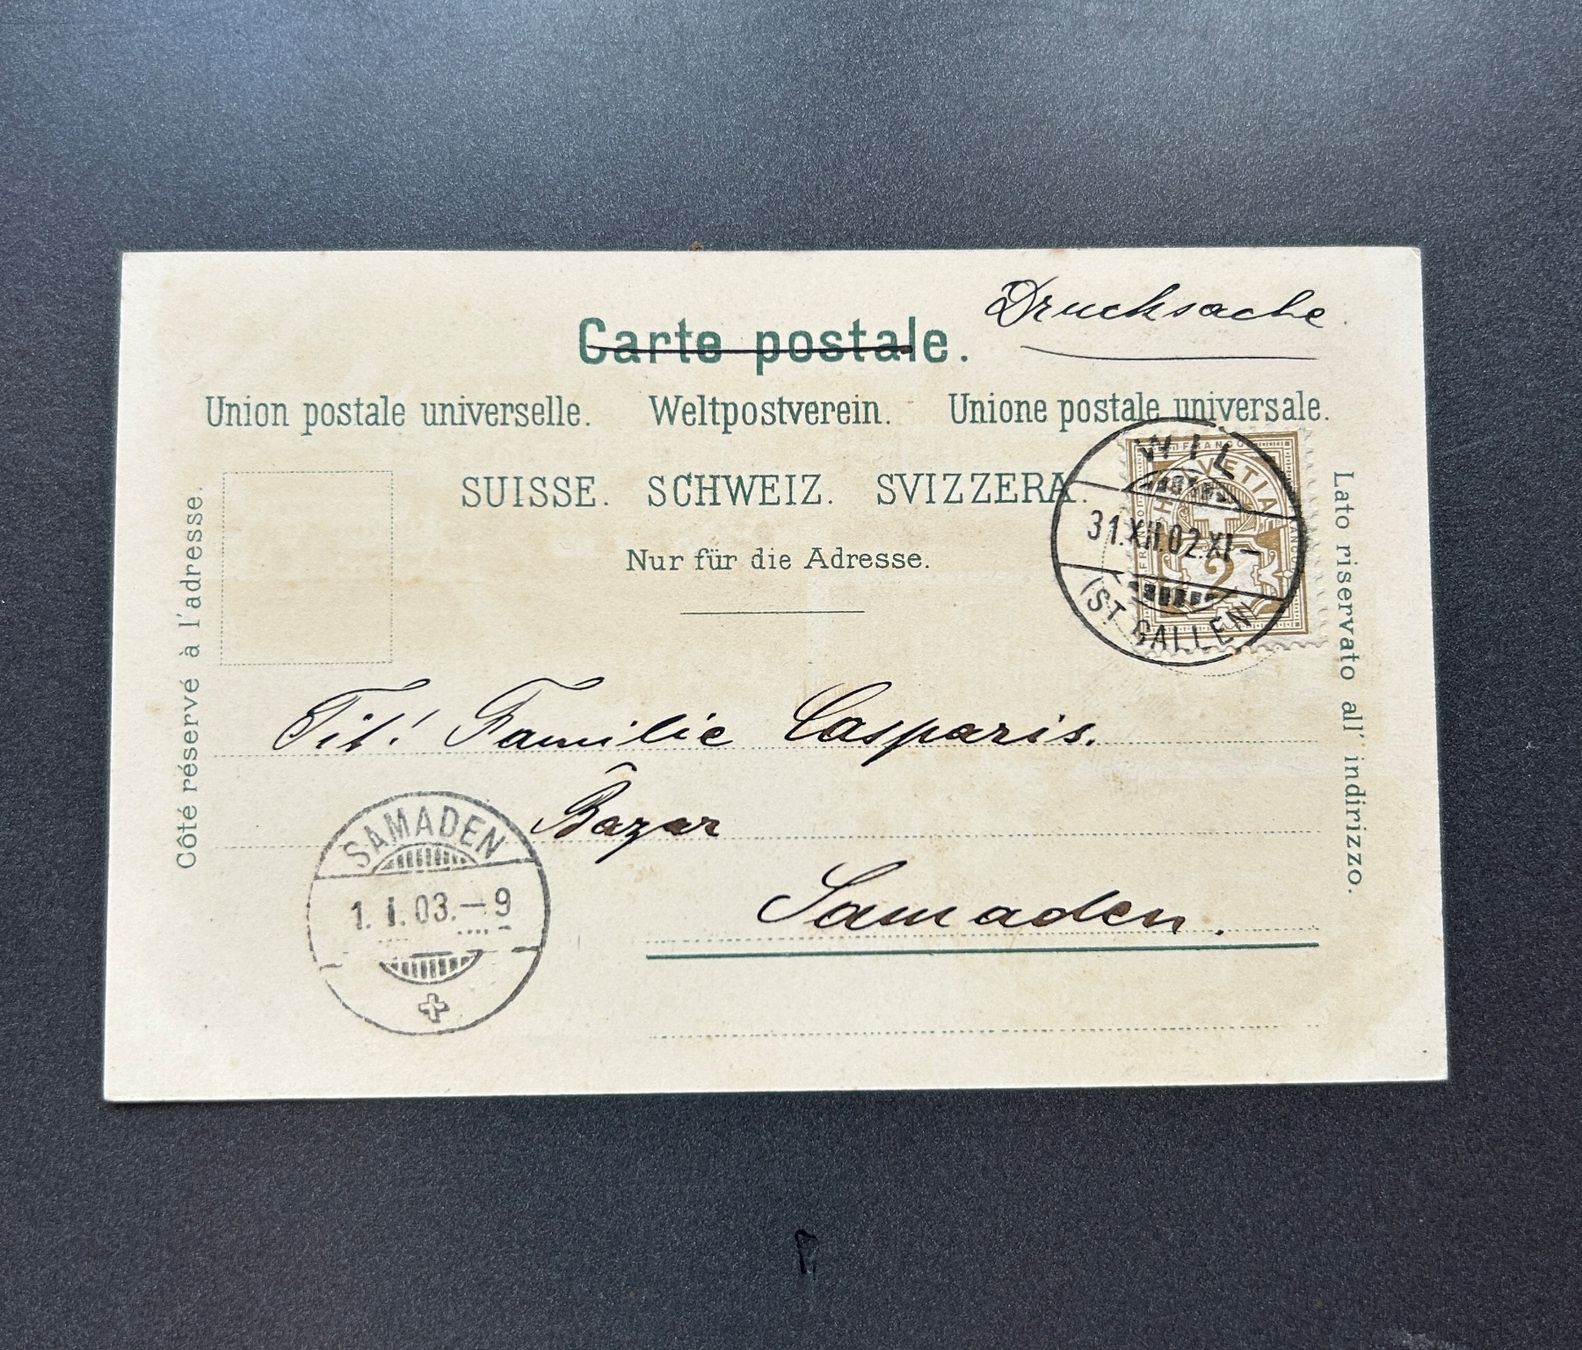 Drucksache
Carte postale.
Union postale universelle. Weltpostverein. Unione postale universale.
SUISSE. SCHWEIZ. SVIZZERA.
Nur für die Adresse.
Côté réservé à l'adresse.
Lato riservato all' indirizzo.
FRANCO
HELVETIA
2
WIL
31.XII.02.XI–
(ST. GALLEN)
Tit! Familie Casparis.
Bazar
Samaden.
SAMADEN
1. I. 03.–9